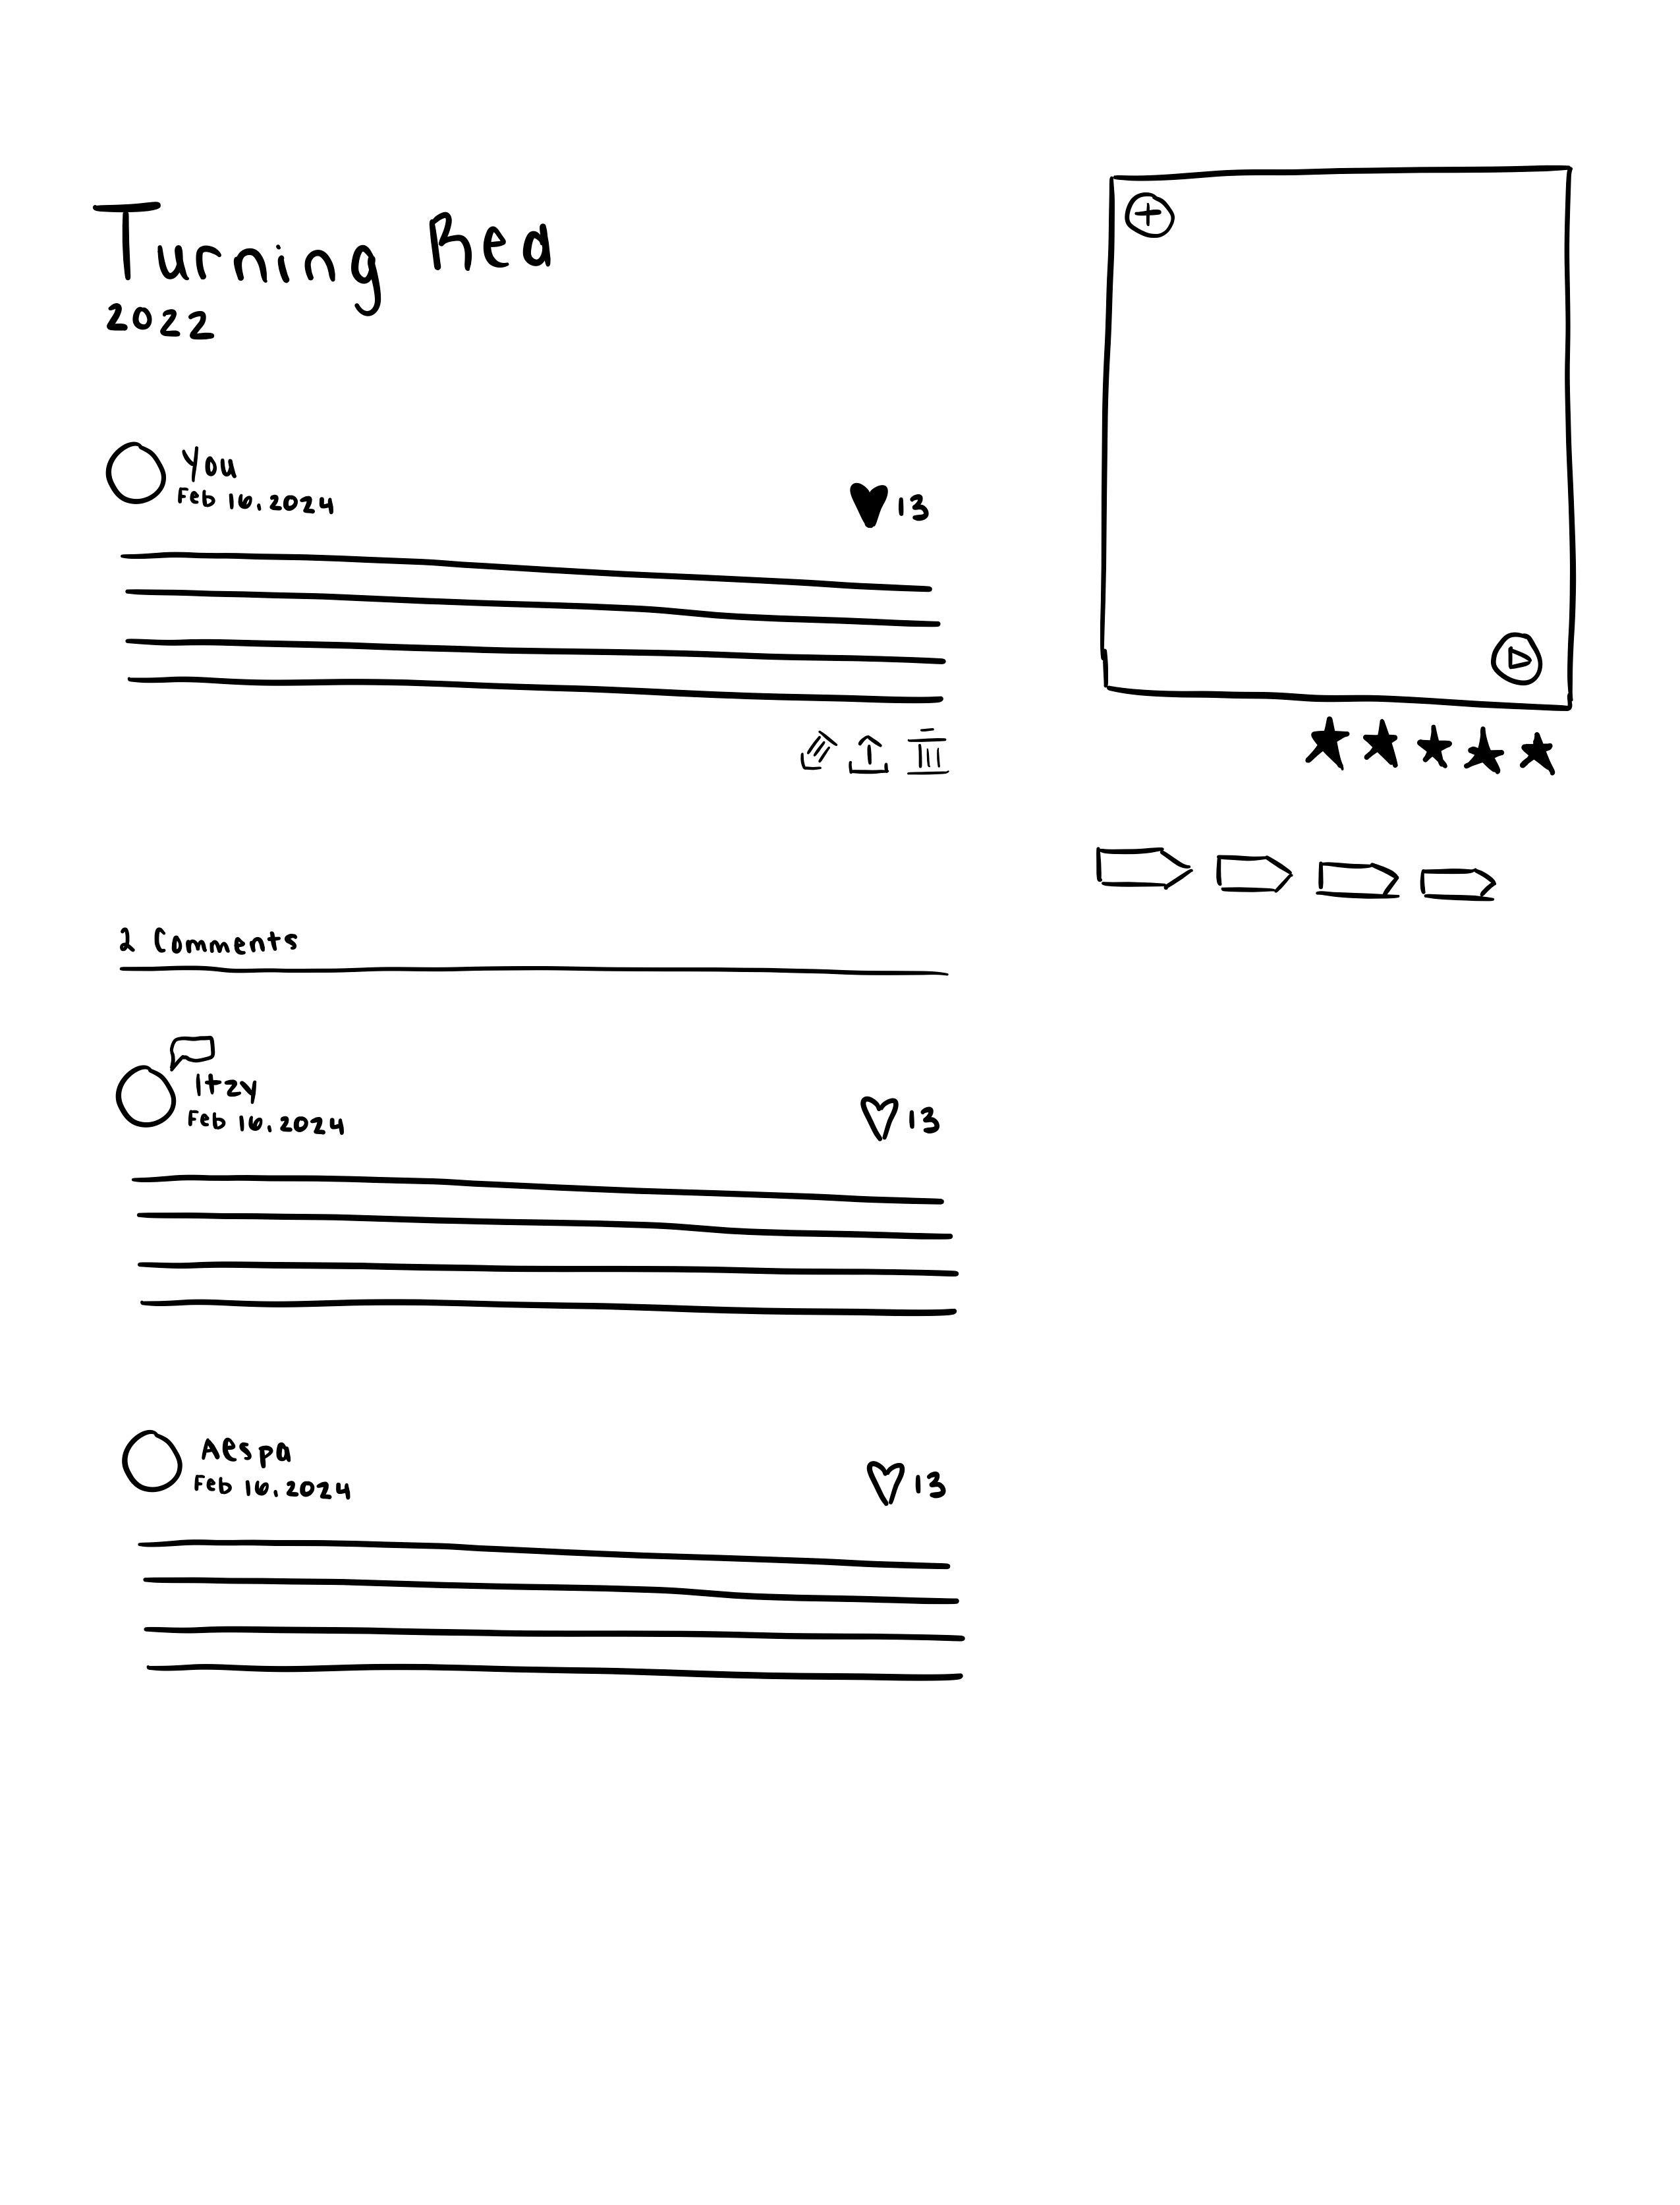 Turning Red
2022
You
Feb 16, 2024
13
2 Comments
Itzy
Feb 16, 2024
13
Aespa
Feb 16, 2024
13